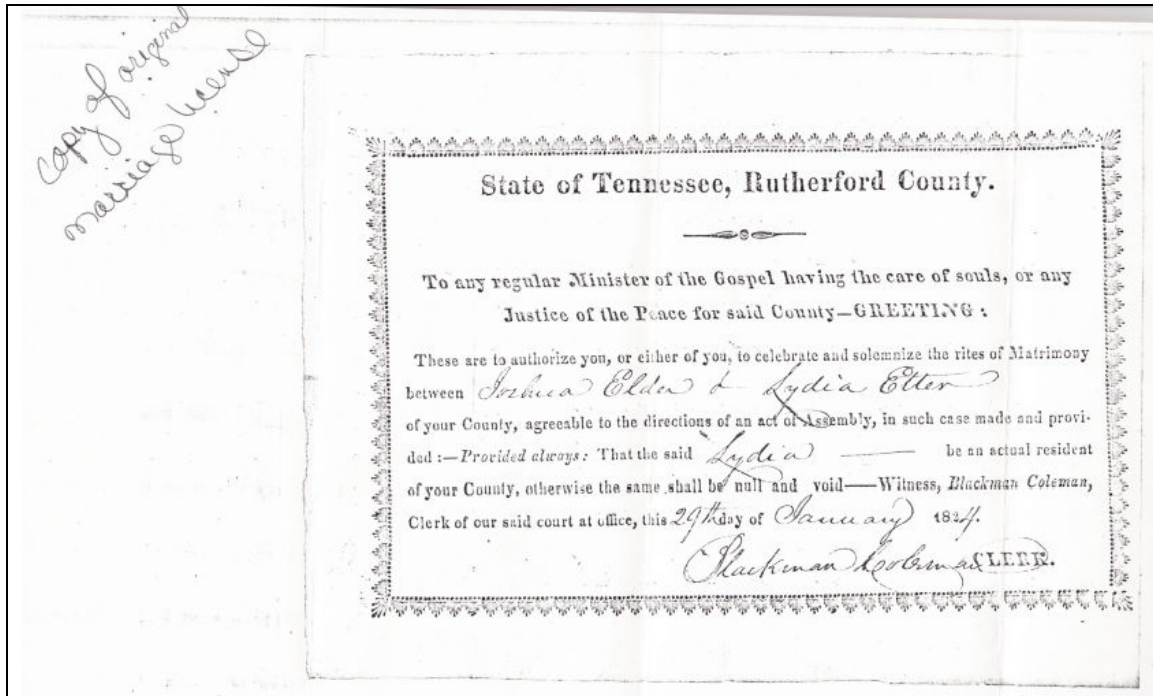 copy of original
marriage license
State of Tennessee, Rutherford County.
To any regular Minister of the Gospel having the care of souls, or any
Justice of the Peace for said County—GREETING:
These are to authorize you, or either of you, to celebrate and solemnize the rites of Matrimony
between Joshua Elder & Lydia Etter
of your County, agreeable to the directions of an act of Assembly, in such case made and provi-
ded:—Provided always: That the said Lydia —— be an actual resident
of your County, otherwise the same shall be null and void——Witness, Blackman Coleman,
Clerk of our said court at office, this 29th day of January 1824.
Blackman Coleman CLERK.